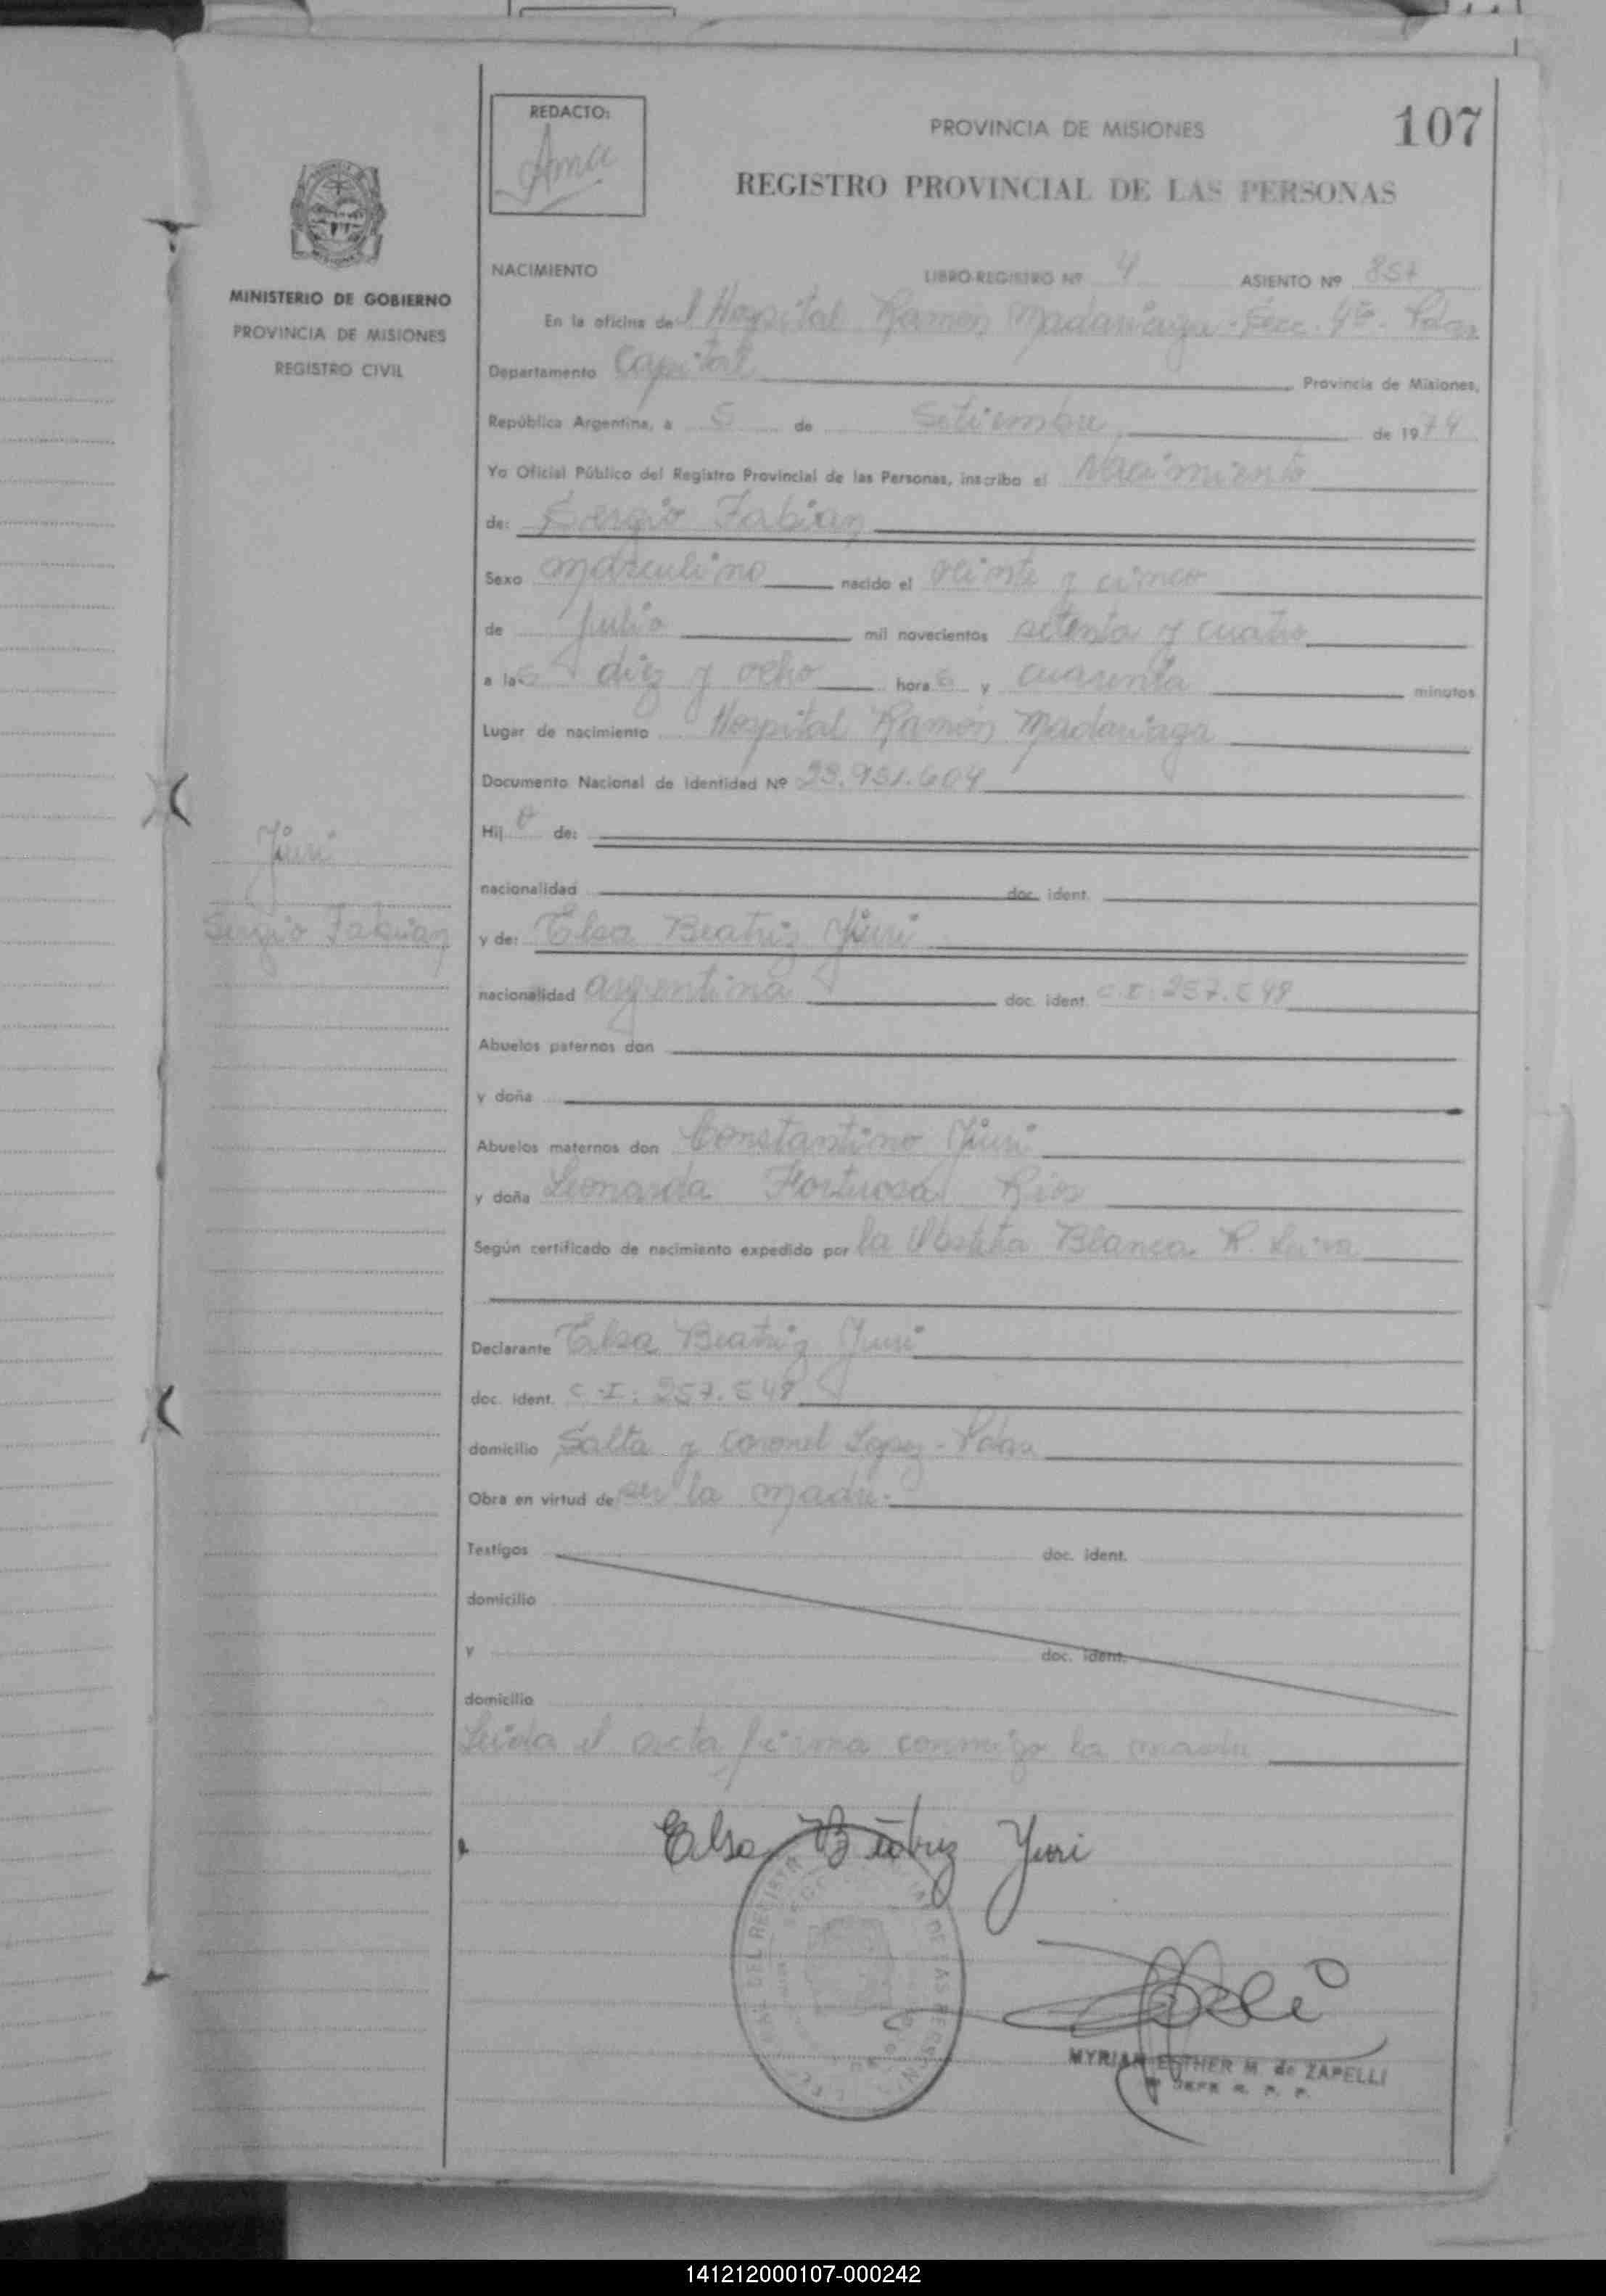 REDACTO:
Ama
PROVINCIA DE MISIONES
107
REGISTRO PROVINCIAL DE LAS PERSONAS
MINISTERIO DE GOBIERNO
PROVINCIA DE MISIONES
REGISTRO CIVIL
NACIMIENTO LIBRO-REGISTRO Nº 4 ASIENTO Nº 857
En la oficina del Hospital Ramón Madariaga - Secc. 4ta. Pdas
Departamento Capital Provincia de Misiones,
República Argentina, a 5 de Setiembre de 1974
Yo Oficial Público del Registro Provincial de las Personas, inscribo el Nacimiento
de: Sergio Fabian
Sexo masculino nacido el veinte y cinco
de Julio mil novecientos setenta y cuatro
a las diez y ocho horas y cuarenta minutos
Lugar de nacimiento Hospital Ramón Madariaga
Documento Nacional de Identidad Nº 23.931.604
Hijo de:
Yuri
nacionalidad doc. ident.
Sergio Fabian
y de: Elsa Beatriz Yuri
nacionalidad argentina doc. ident. C.I. 257.548
Abuelos paternos don
y doña
Abuelos maternos don Constantino Yuri
y doña Leonarda Fortuosa Rios
Según certificado de nacimiento expedido por la Obstetra Blanca R. Leiva
Declarante Elsa Beatriz Yuri
doc. ident. C.I. 257.548
domicilio Salta y Coronel Lopez - Pdas
Obra en virtud de ser la madre.
Testigos doc. ident.
domicilio
y doc. ident.
domicilio
Leida el acta firma conmigo la madre
Elsa Beatriz Yuri
MYRIAM ESTHER M. de ZAPELLI
JEFE R. P. P.
141212000107-000242